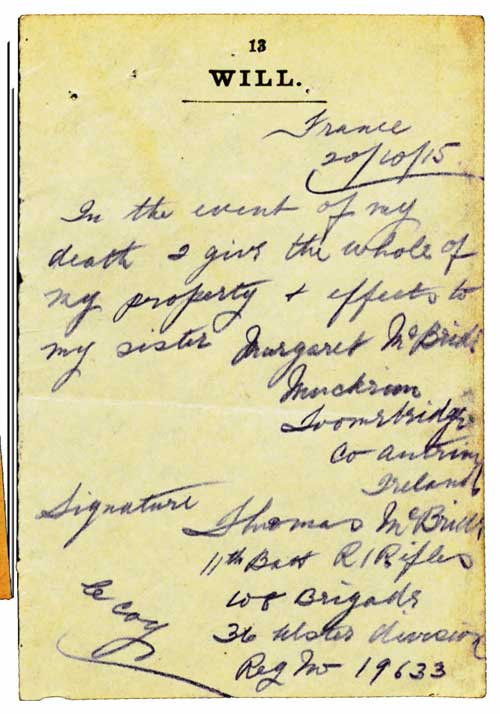 13
WILL.
France
20/10/15
In the event of my
death I give the whole of
my property + effects to
my sister Margaret McBride
Muckrim
Toomebridge
Co Antrim
Ireland
Signature
Thomas McBride
11th Batt R I Rifles
108 Brigade
C Coy
36 Ulster division
Reg No 19633